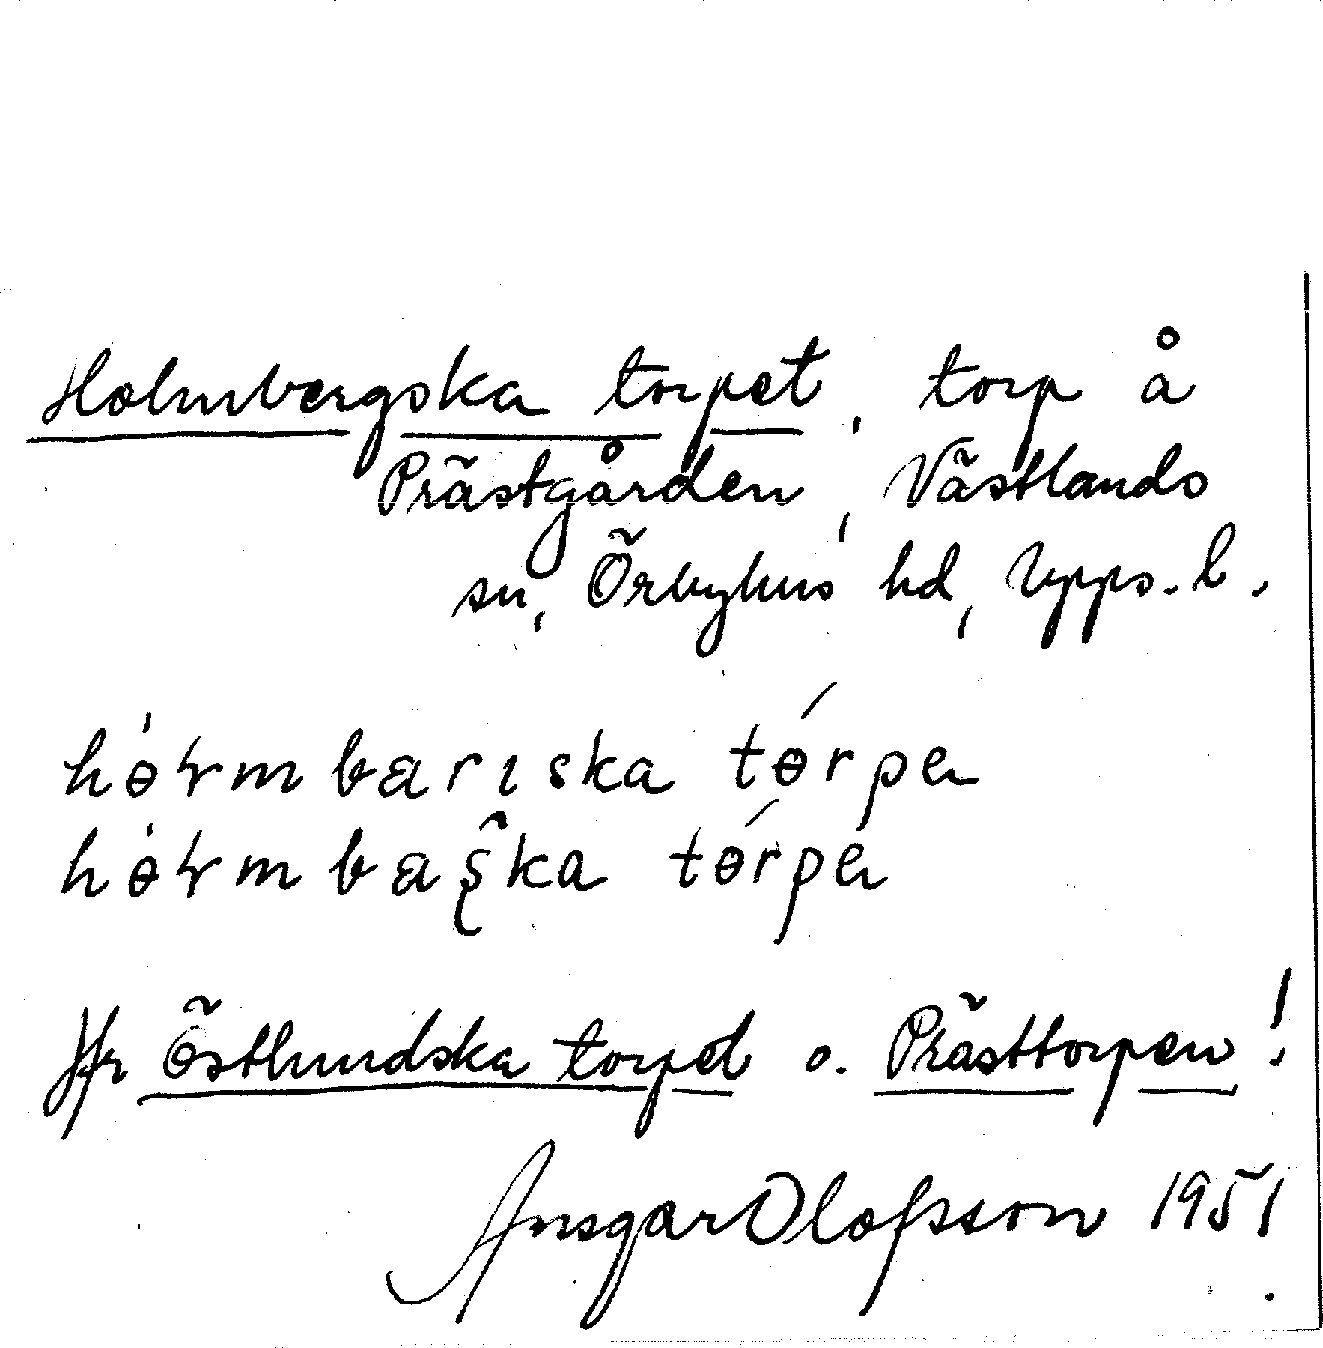 Holmbergska torpet, torp å
Prästgården, Västlands
sn, Örbyhus hd, Upps. l.
hɵ́ɽmbarıska tɵ́rpe
hɵ́ɽmbaʂka tɵ́rpe
Jfr Östlundska torpet o. Prästtorpen!
Ansgar Olofsson 1951